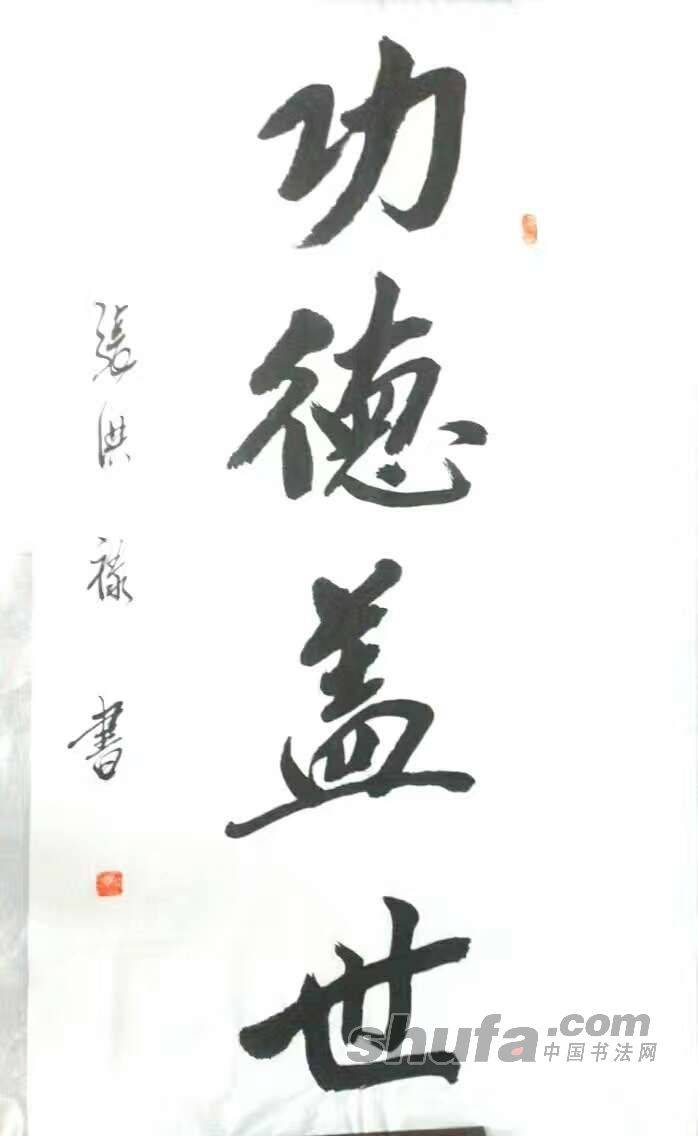 功德盖世
張洪禄書
shufa.com
中国书法网